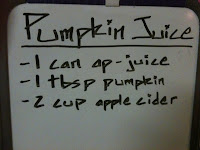 Pumpkin Juice
-1 can ap-juice
-1 tbsp pumpkin
-2 cup apple cider